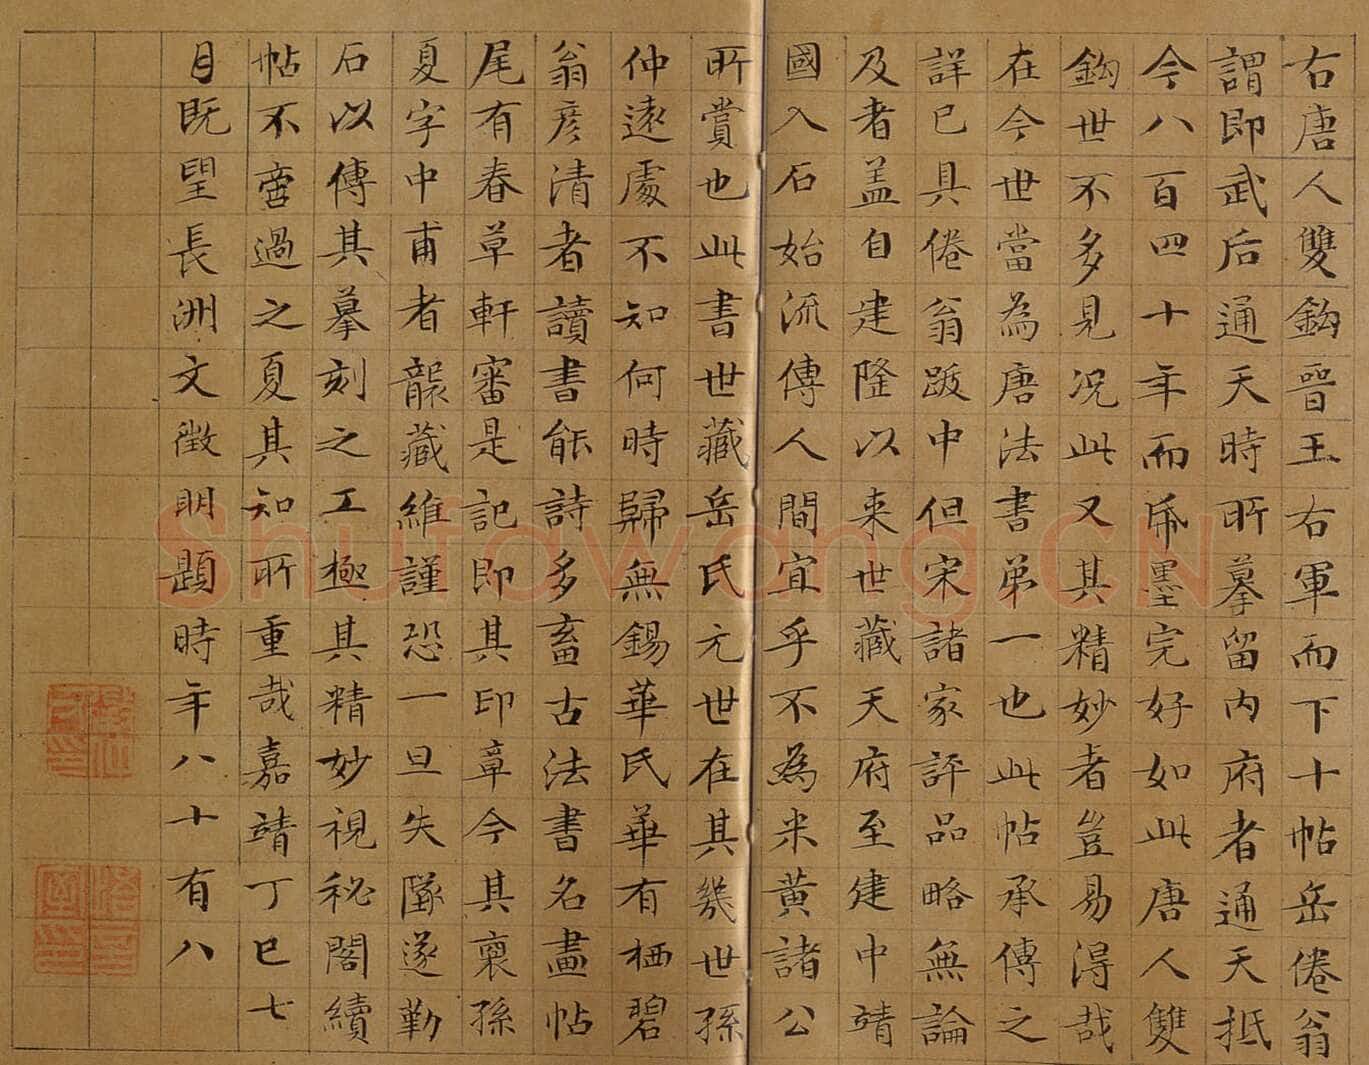 右唐人雙鈎晉王右軍而下十帖岳倦翁
謂即武后通天時所摹留內府者通天抵
今八百四十年而帋墨完好如此唐人雙
鈎世不多見況此又其精妙者豈易淂哉
在今世當為唐法書弟一也此帖承傳之
詳已具倦翁跋中但宋諸家評品略無論
及者盖自建隆以来世藏天府至建中靖
國入石始流傳人間宜乎不為米黄諸公
所賞也此書世藏岳氏元世在其幾世孫
仲遠處不知何時歸無錫華氏華有栖碧
翁彦清者讀書能詩多畜古法書名畫帖
尾有春草軒審是記即其印章今其裔孫
夏字中甫者襲藏維謹恐一旦失墜遂勤
石以傳其摹刻之工極其精妙視秘閣續
帖不啻過之夏其知所重哉嘉靖丁巳七
月既望長洲文徵明題時年八十有八
Shufawang.CN